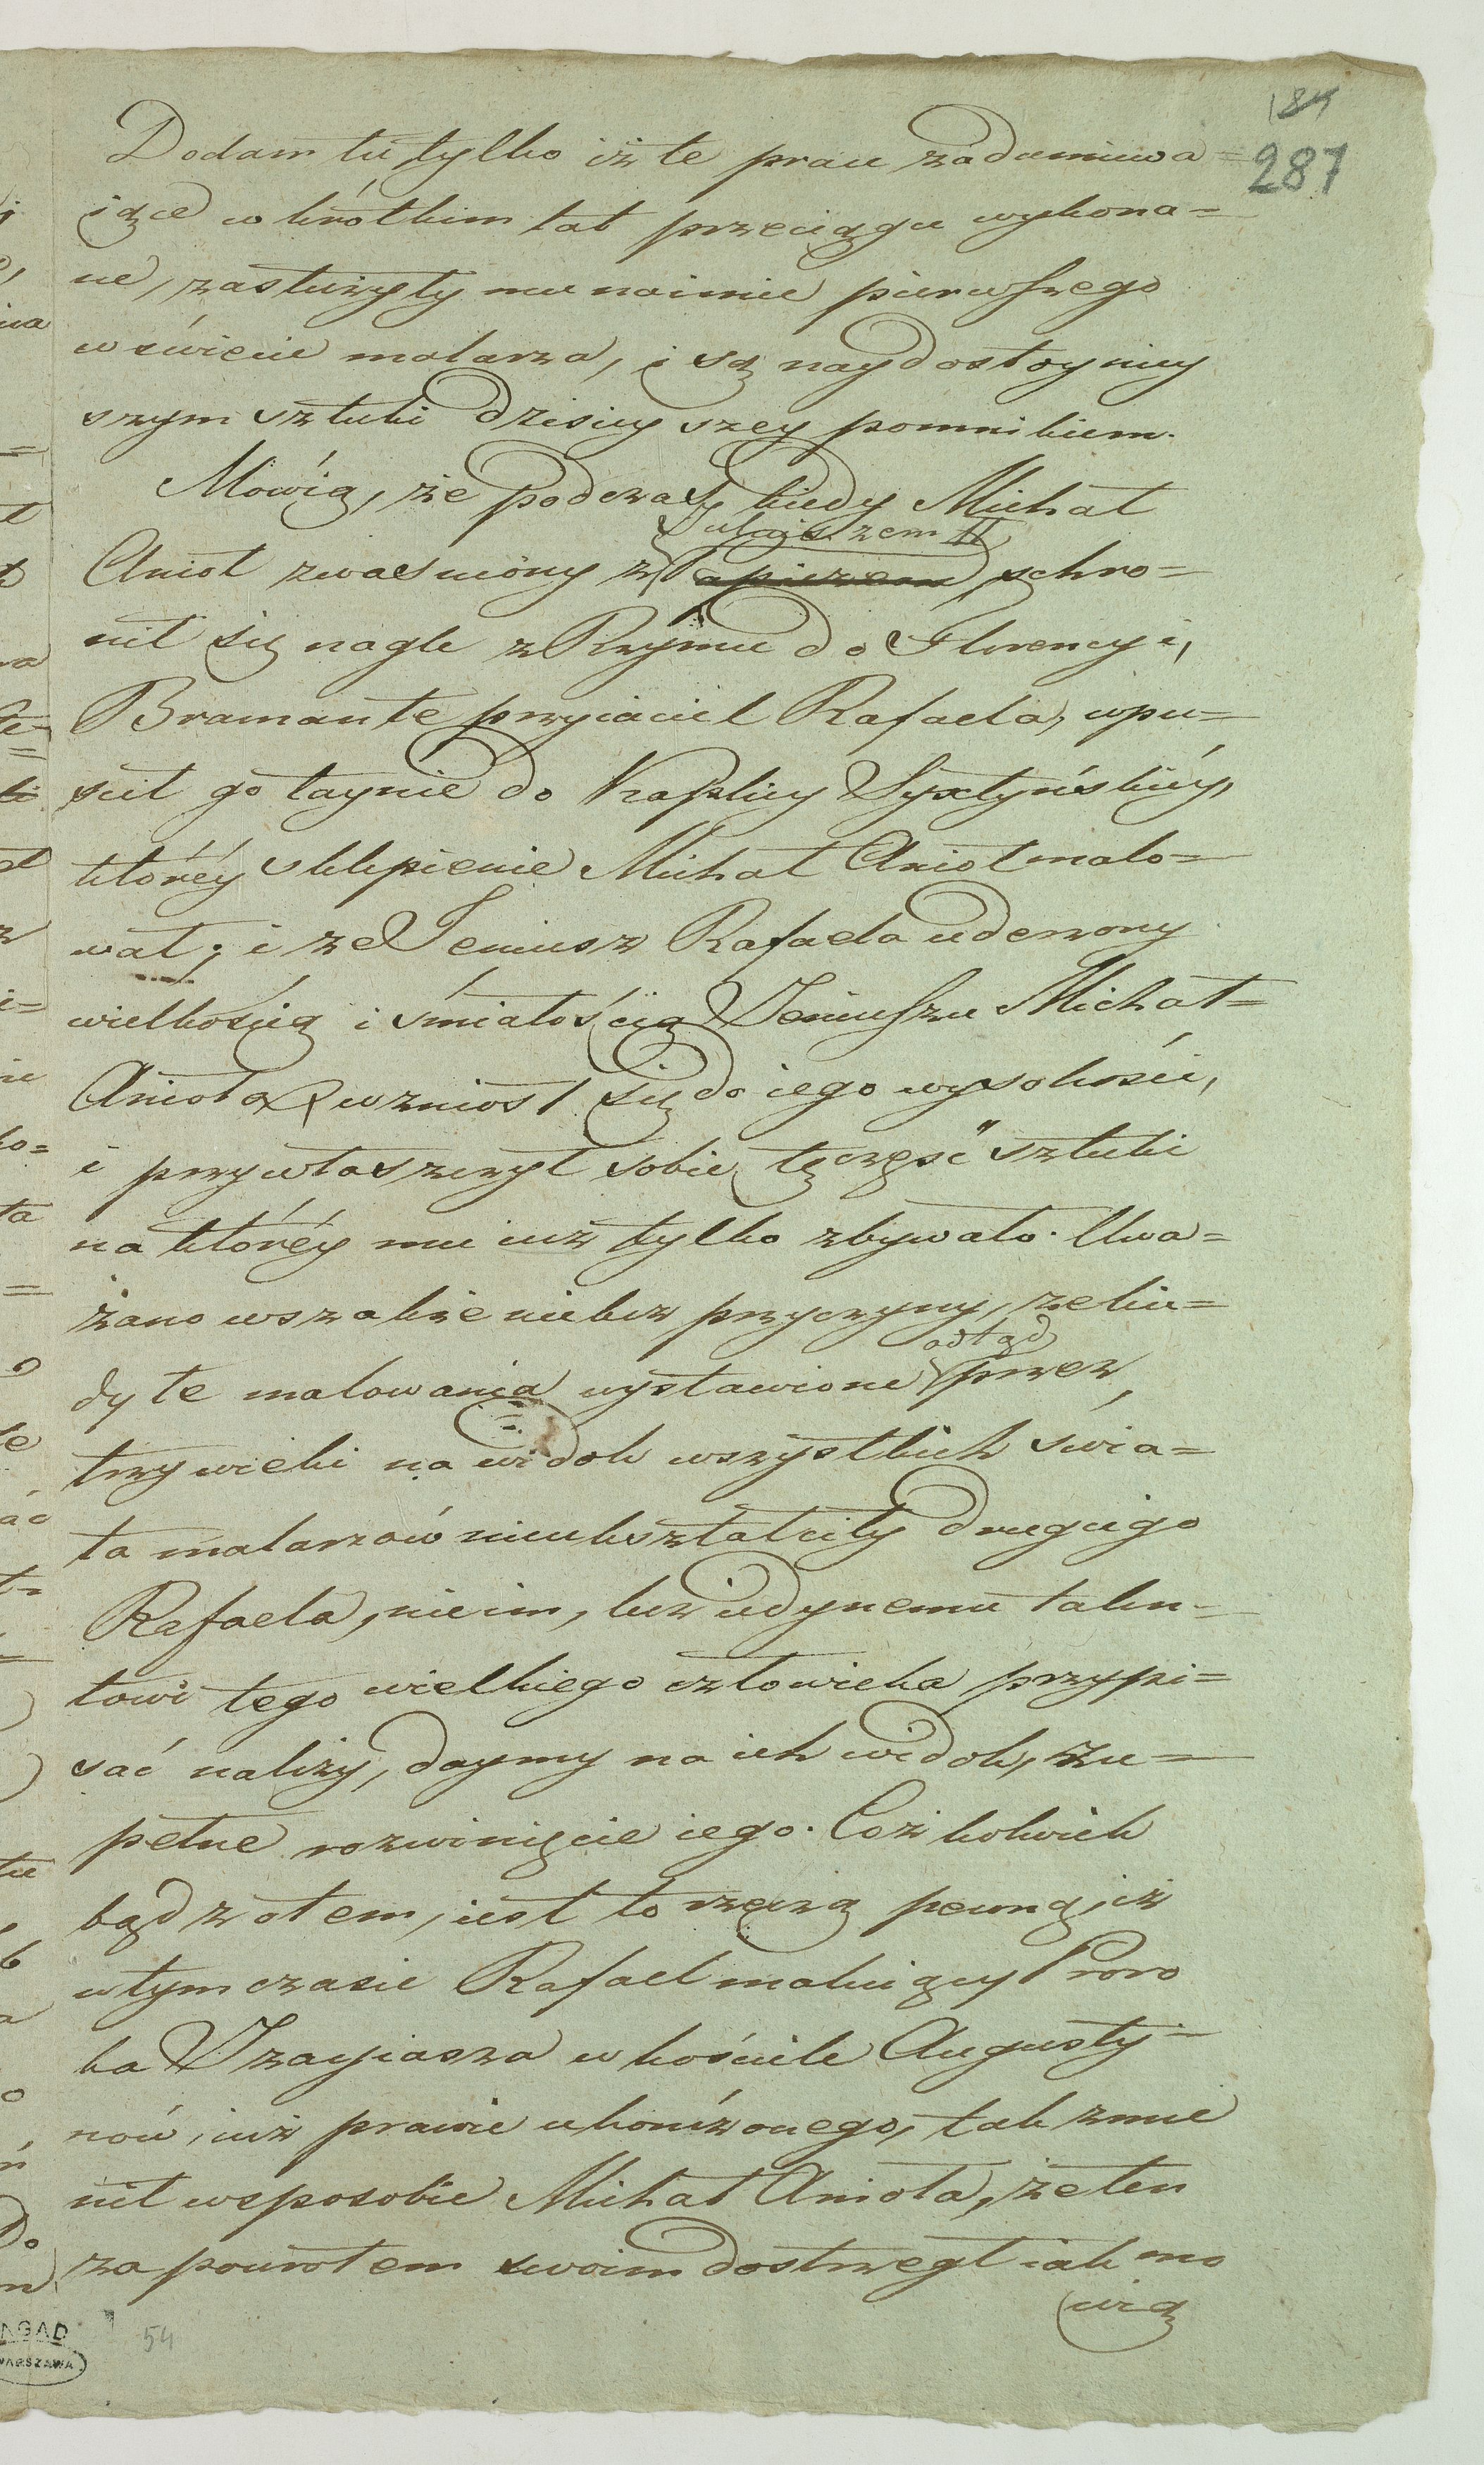 184
287
Dodam tu tylko iż te prace zadumiewa=
iące w krótkim lat przeciągu wykona=
ne, zasłużyły mu na imie pierwszego
w świecie malarza, i są naydostoyniey
szym sztuki dzisieyszey pomnikiem.
Mówią, że podczas kiedy Michał
Juliuszem II
Anioł zwaśniony z Papieżem schro=
nił się nagle z Rzymu do Florencyi,
Bramante przyiaciel Rafaela, wpu=
scił go taynie do Kaplicy Syxtyńskiéy,
któréy sklepienie Michał Anioł malo=
wał; i że Jeniusz Rafaela uderzony
wielkością i śmiałością Jeniuszu Michał=
Anioła wzniosł się do iego wysokości,
i przywłaszczył sobie tę część sztuki
na któréy mu iuż tylko zbywało. Uwa=
żano wszakże nie bez przyczyny, że kie=
odtąd
dy te malowania wystawione przez
trzy wieki na widok wszystkich świa=
ta malarzów nieukształciły drugiego
Rafaela, nie im, lecz iedynemu talen=
towi tego wielkiego człowieka przypi=
sać należy, daymy na ich widok, zu=
pełne rozwinięcie iego. Coż kolwiek
bądz o tem, iest to rzeczą pewną, iż
w tym czasie Rafael maluiący Proro
ka Izayiasza w kościele Augusty=
nów, iuż prawie ukończonego, tak zmie
nił w sposobie Michał Anioła, że ten
za powrotem swoim dostrzegł iak mo
wią
AGAD
WARSZAWA
54